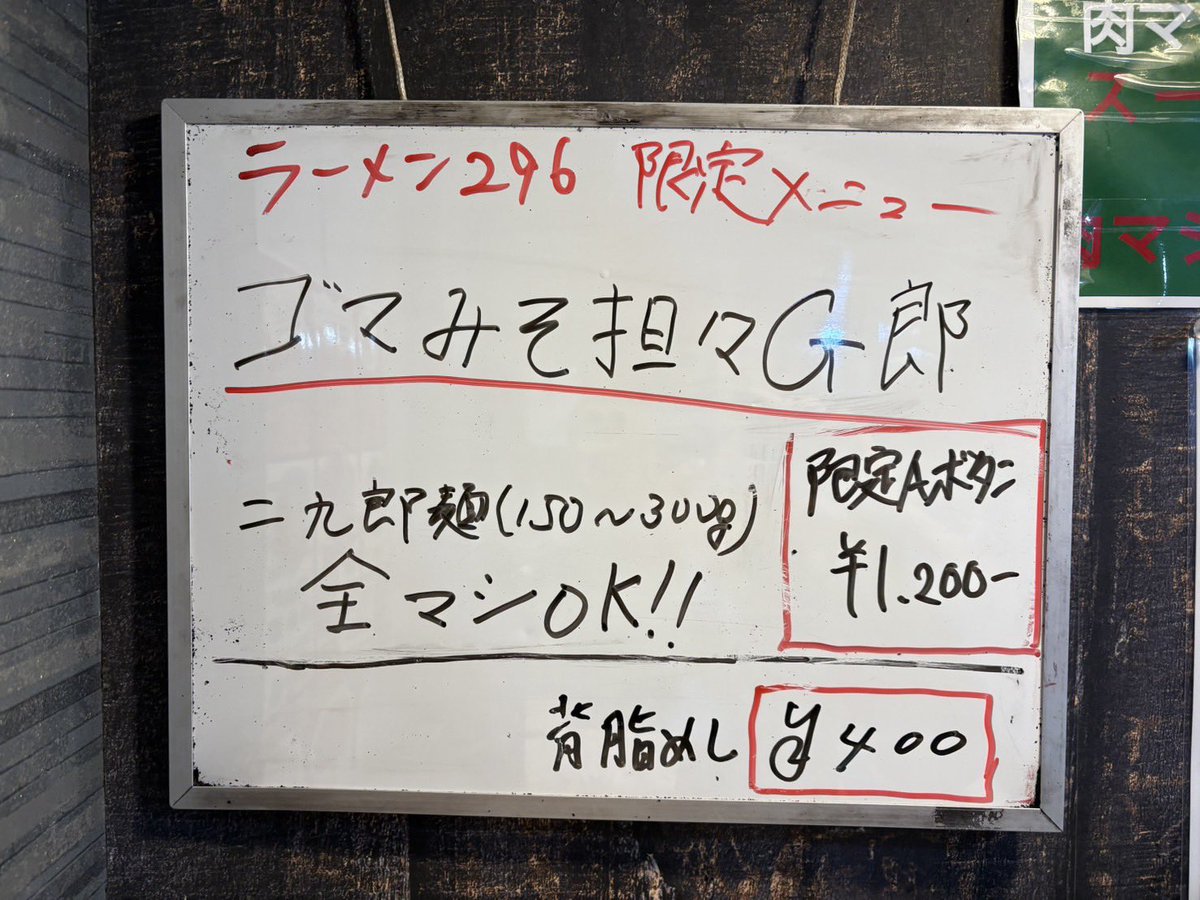 ラーメン296 限定メニュー
ゴマみそ担々G郎
二九郎麺(150～300g)
全マシOK!!
限定Aボタン
¥1.200-
背脂めし ¥400
肉マ
スー
肉マシ